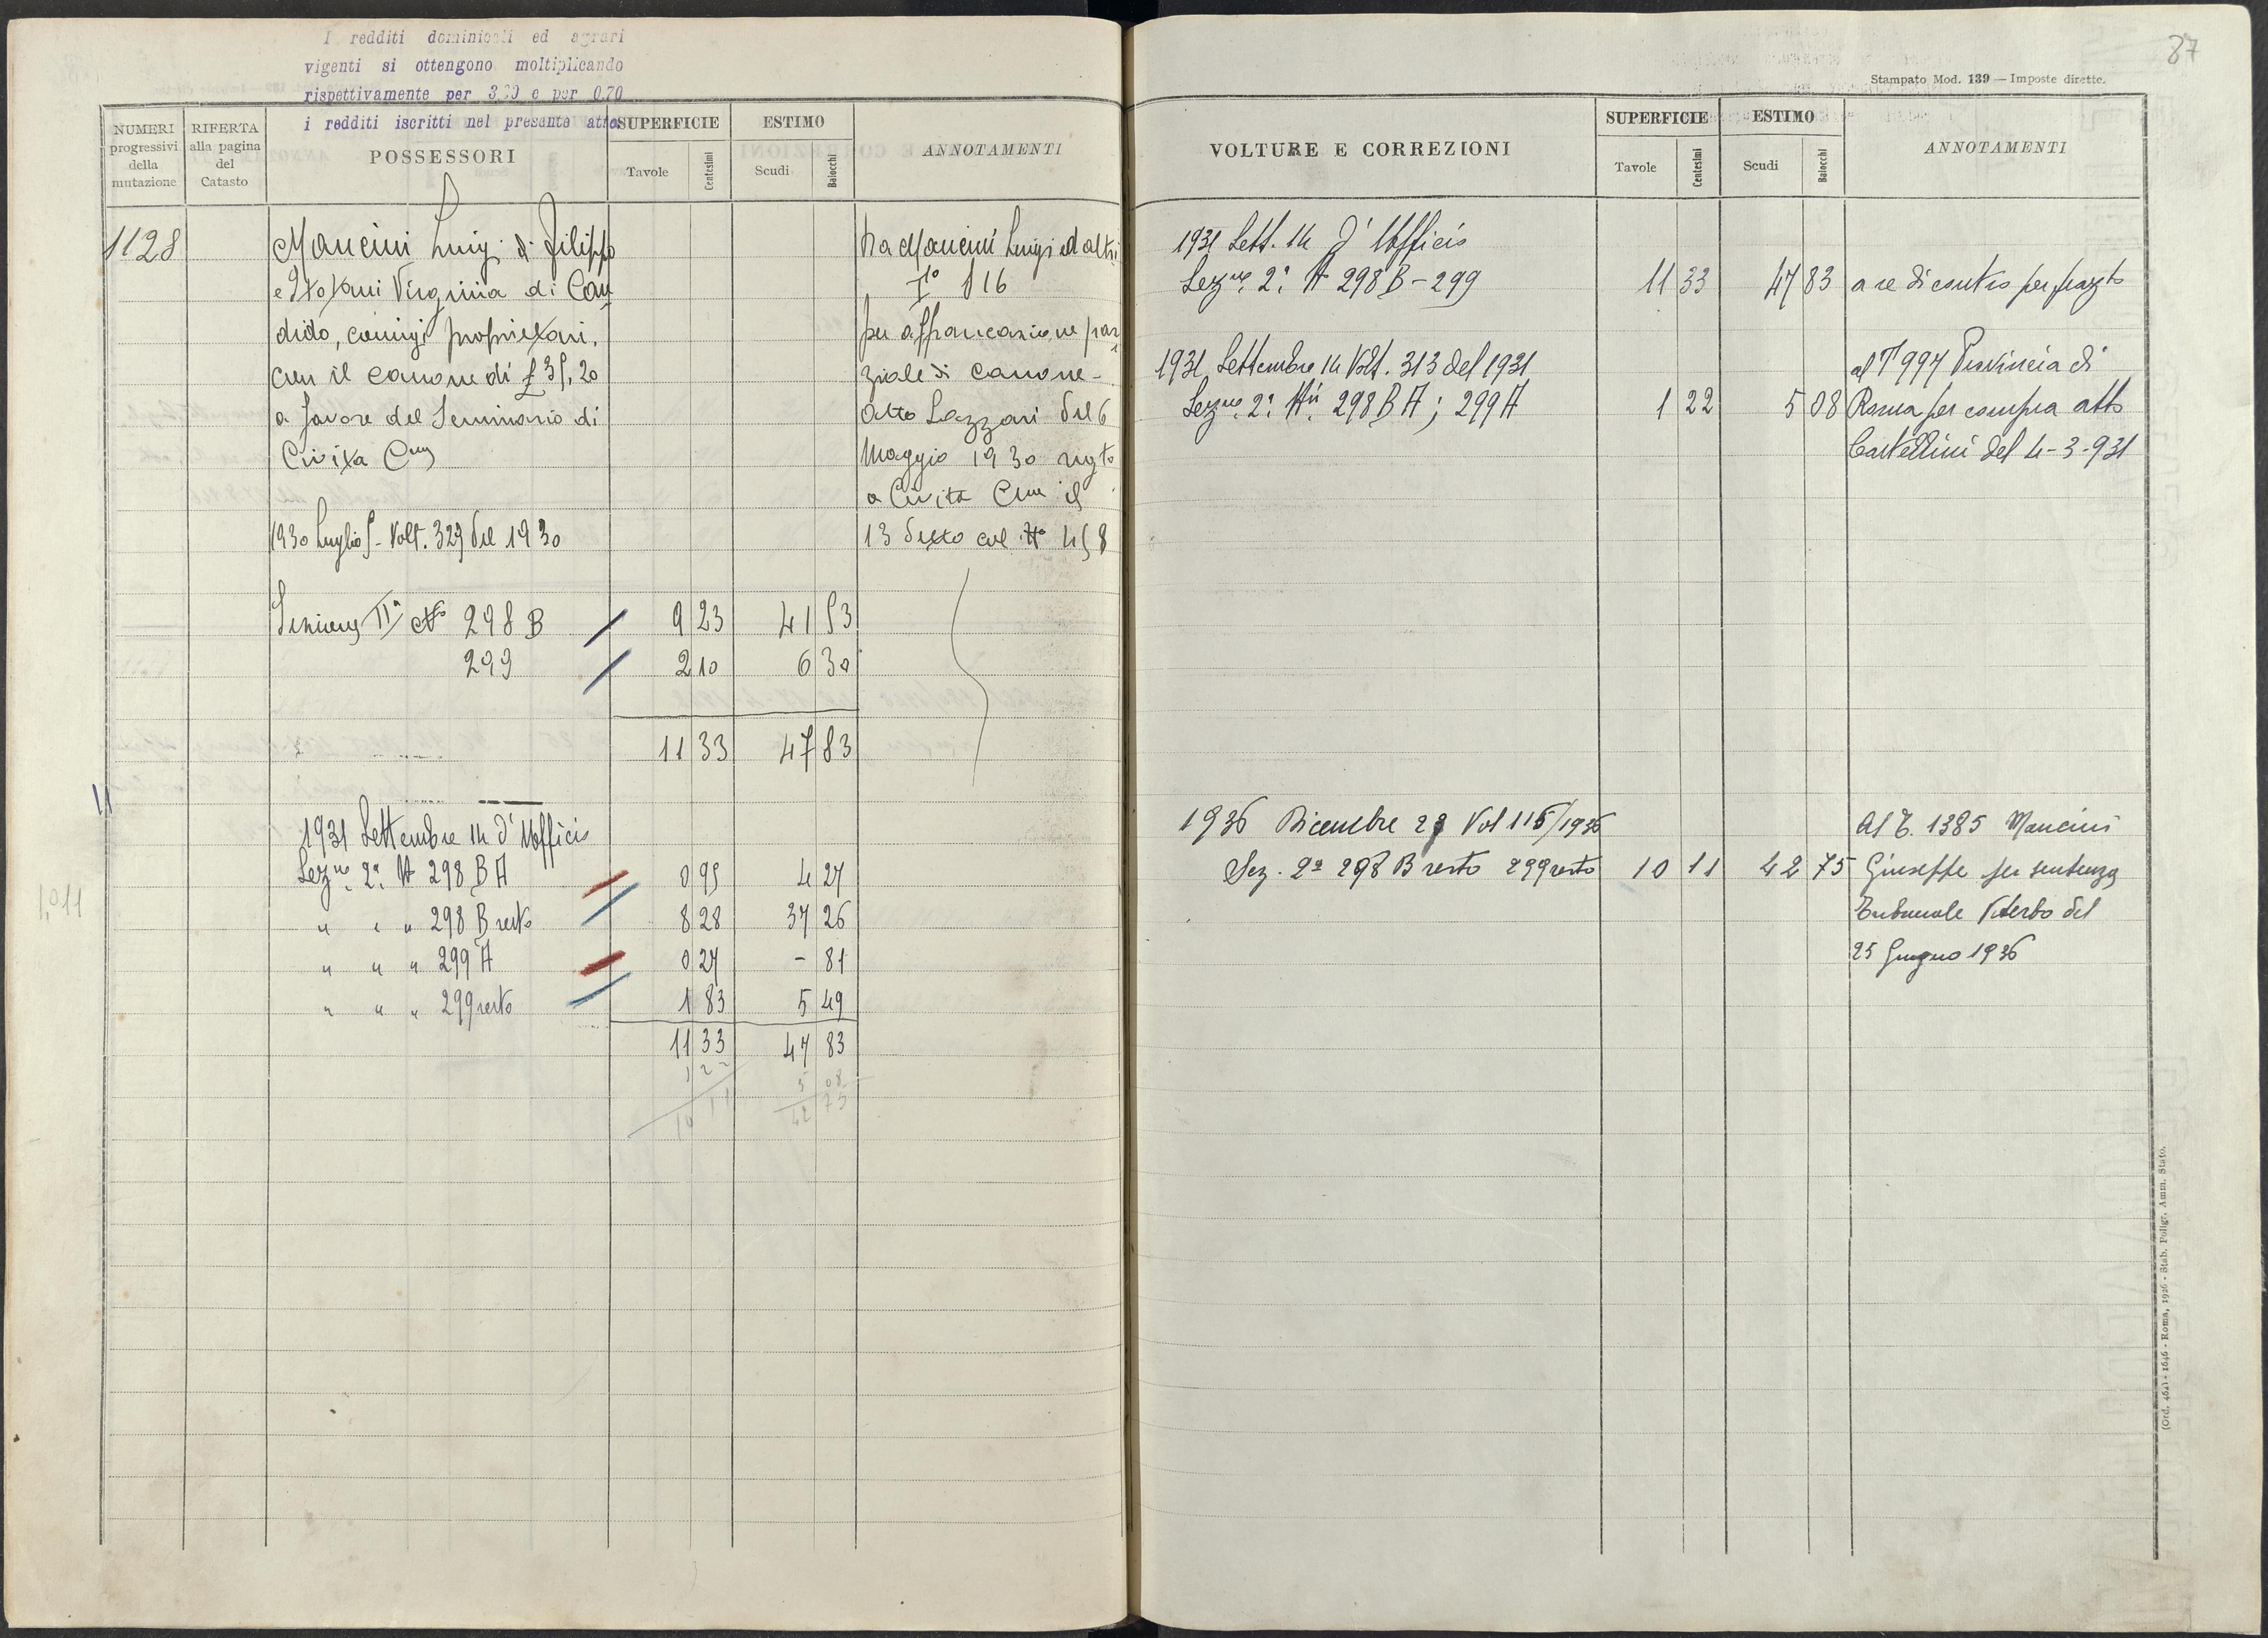 I redditi dominicali ed agrari
vigenti si ottengono moltiplicando
rispettivamente per 3,30 e per 0,70
i redditi iscritti nel presente atto
NUMERI progressivi della mutazione
RIFERTA alla pagina del Catasto
POSSESSORI
SUPERFICIE
Tavole Centesimi
ESTIMO
Scudi Baiocchi
ANNOTAMENTI
1128
Mancini Luigi di Filippo
e Stoxani Virginia di Can
dido, coniugi proprietari,
con il canone di £ 35,20
a favore del Seminario di
Civita Cna
1930 Luglio 5 - Volt. 329 del 1930
Sezione IIa No 298 B 9 23 41 53
299 2 10 6 30
11 33 47 83
da Mancini Luigi ed altri
Io 516
per affrancazione par
ziale di canone -
Atto Lazzari del 6
Maggio 1930 regto
a Civita Cna il
13 detto al No 458
1931 Settembre 14 d'Ufficio
Sezne 2a N 298 B A 0 95 4 27
" " " 298 B resto 8 28 37 26
" " " 299 A 0 27 - 81
" " " 299 resto 1 83 5 49
11 33 47 83
1 22 5 08
10 11 42 75
1,011
87
Stampato Mod. 139 — Imposte dirette.
VOLTURE E CORREZIONI
SUPERFICIE
Tavole Centesimi
ESTIMO
Scudi Baiocchi
ANNOTAMENTI
1931 Sett. 14 d'Ufficio
Sezne 2a N 298 B - 299 11 33 47 83 a se di contro per frazto
1931 Settembre 14 Volt. 313 del 1931
Sezne 2a Ni 298 B A; 299 A 1 22 5 08
al T 997 Provincia di
Roma per compra atto
Castellini del 4-3-931
1936 Dicembre 29 Vol 115/1936
Sez. 2a 298 B resto 299 resto 10 11 42 75
Al T. 1385 Mancini
Giuseppe per sentenza
Tribunale Viterbo del
25 Giugno 1936
(Ord. 464) - 1646 - Roma, 1926 - Stab. Poligr. Amm. Stato.